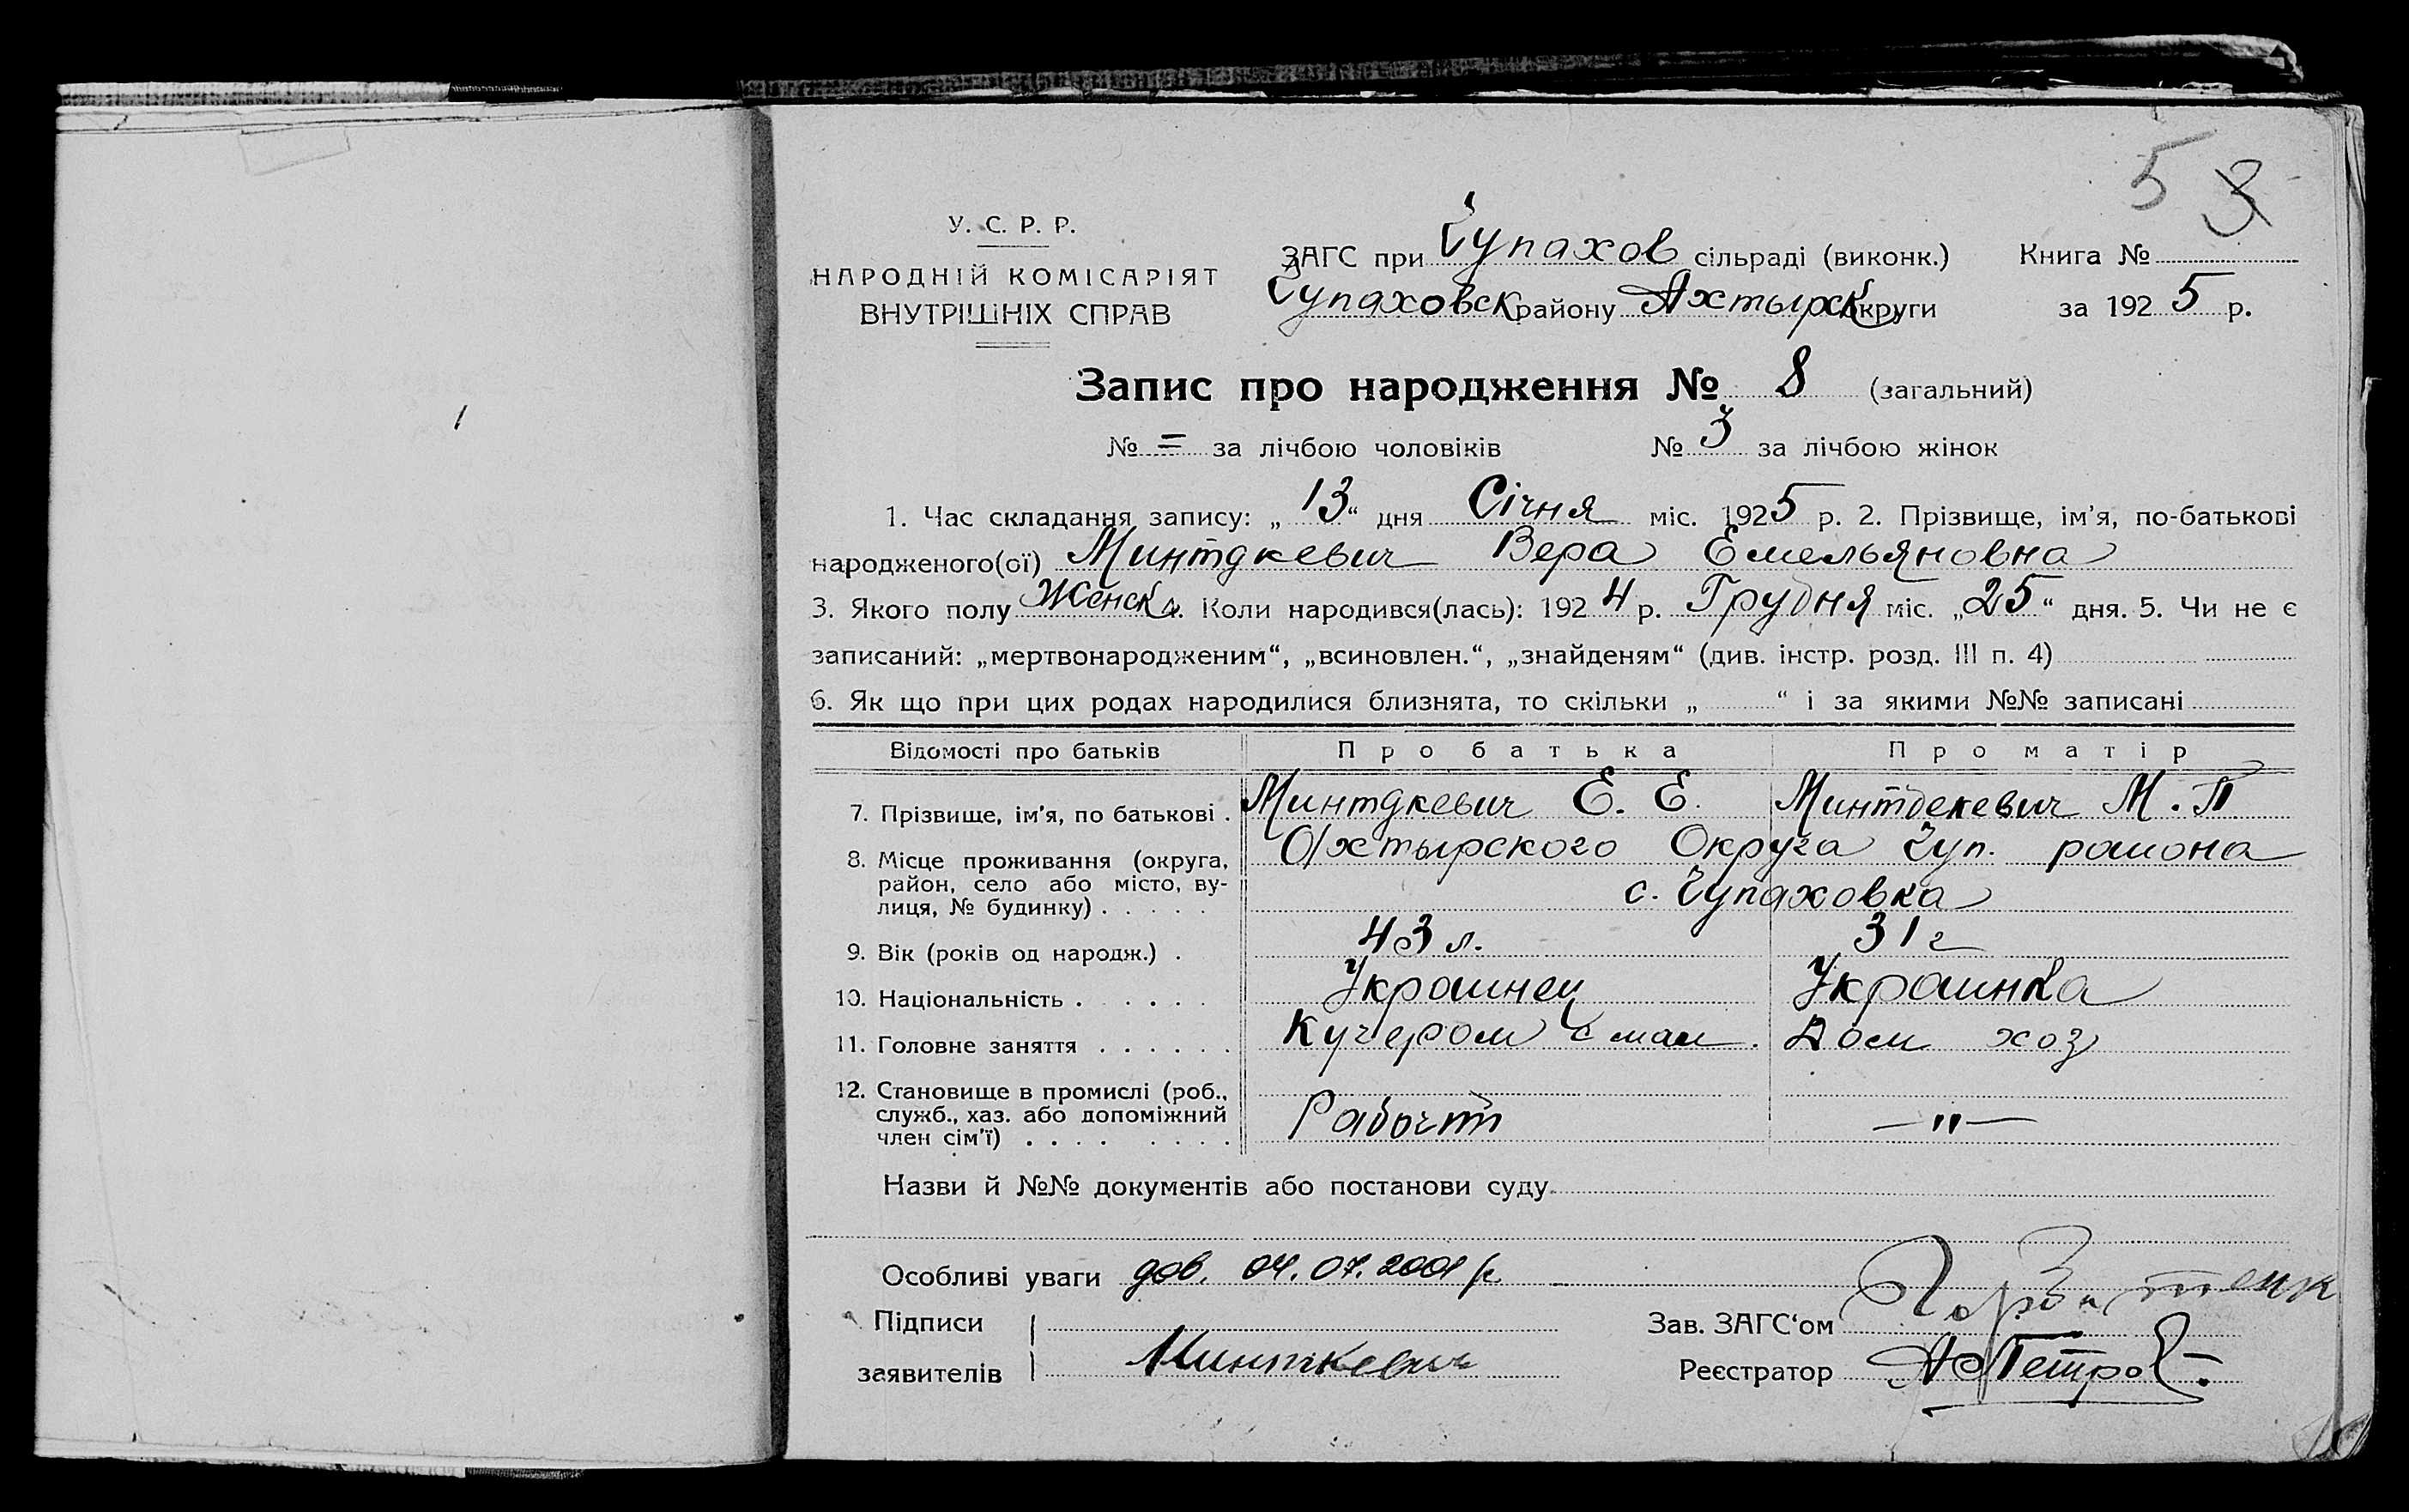 5 3
У. С. Р. Р.
НАРОДНІЙ КОМІСАРІЯТ
ВНУТРІШНІХ СПРАВ
ЗАГС при Чупахов сільраді (виконк.) Книга №
Чупаховск району Ахтырск округи за 1925 р.
Запис про народження № 8 (загальний)
№ = за лічбою чоловіків № 3 за лічбою жінок
1. Час складання запису: „13“ дня Січня міс. 1925 р. 2. Прізвище, ім'я, по-батькові
народженого(ої) Минтдкевич Вера Емельяновна
3. Якого полу Женск 4. Коли народився(лась): 1924 р. Грудня міс. „25“ дня. 5. Чи не є
записаний: „мертвонародженим“, „всиновлен.“, „знайденям“ (див. інстр. розд. III п. 4)
6. Як що при цих родах народилися близнята, то скільки „ “ і за якими №№ записані
Відомості про батьків Про батька Про матір
7. Прізвище, ім'я, по батькові . Минтдкевич Е. Е. Минтдекевич М. П
8. Місце проживання (округа, Ахтырского Округа Чуп. раиона
район, село або місто, ву- с. Чупаховка
лиця, № будинку) . . . . .
9. Вік (років од народж.) . 43 л. 31 г
10. Національність . . . . . Украинец Украинка
11. Головне заняття . . . . . . Кучером Дом хоз
12. Становище в промислі (роб.,
служб., хаз. або допоміжний Рабочий —"—
член сім'ї) . . . . . . . .
Назви й №№ документів або постанови суду
Особливі уваги дов. 04.07.2001 р
Підписи
Зав. ЗАГС'ом
заявителів Минткевич
Реєстратор АПетров